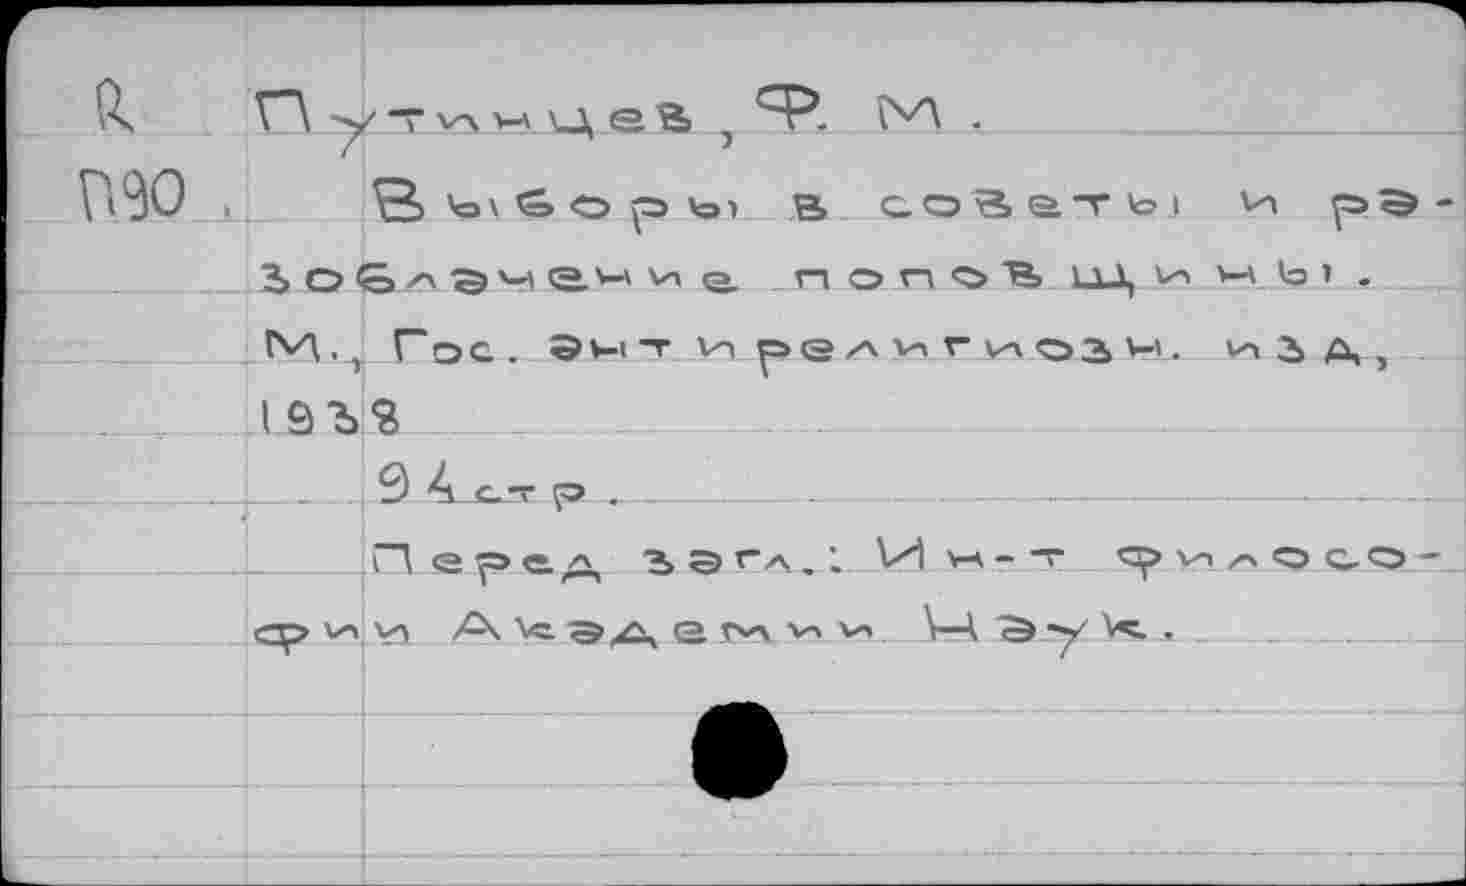 R Путинцев, Ф. М.
П90. Выборы в советы и ра-
зоблачение поповщины.
М., Гос. ант и религиозн. изд,
1938
94 стр.
Перед загл.: Ин-т филосо-
фии Академии Наук.